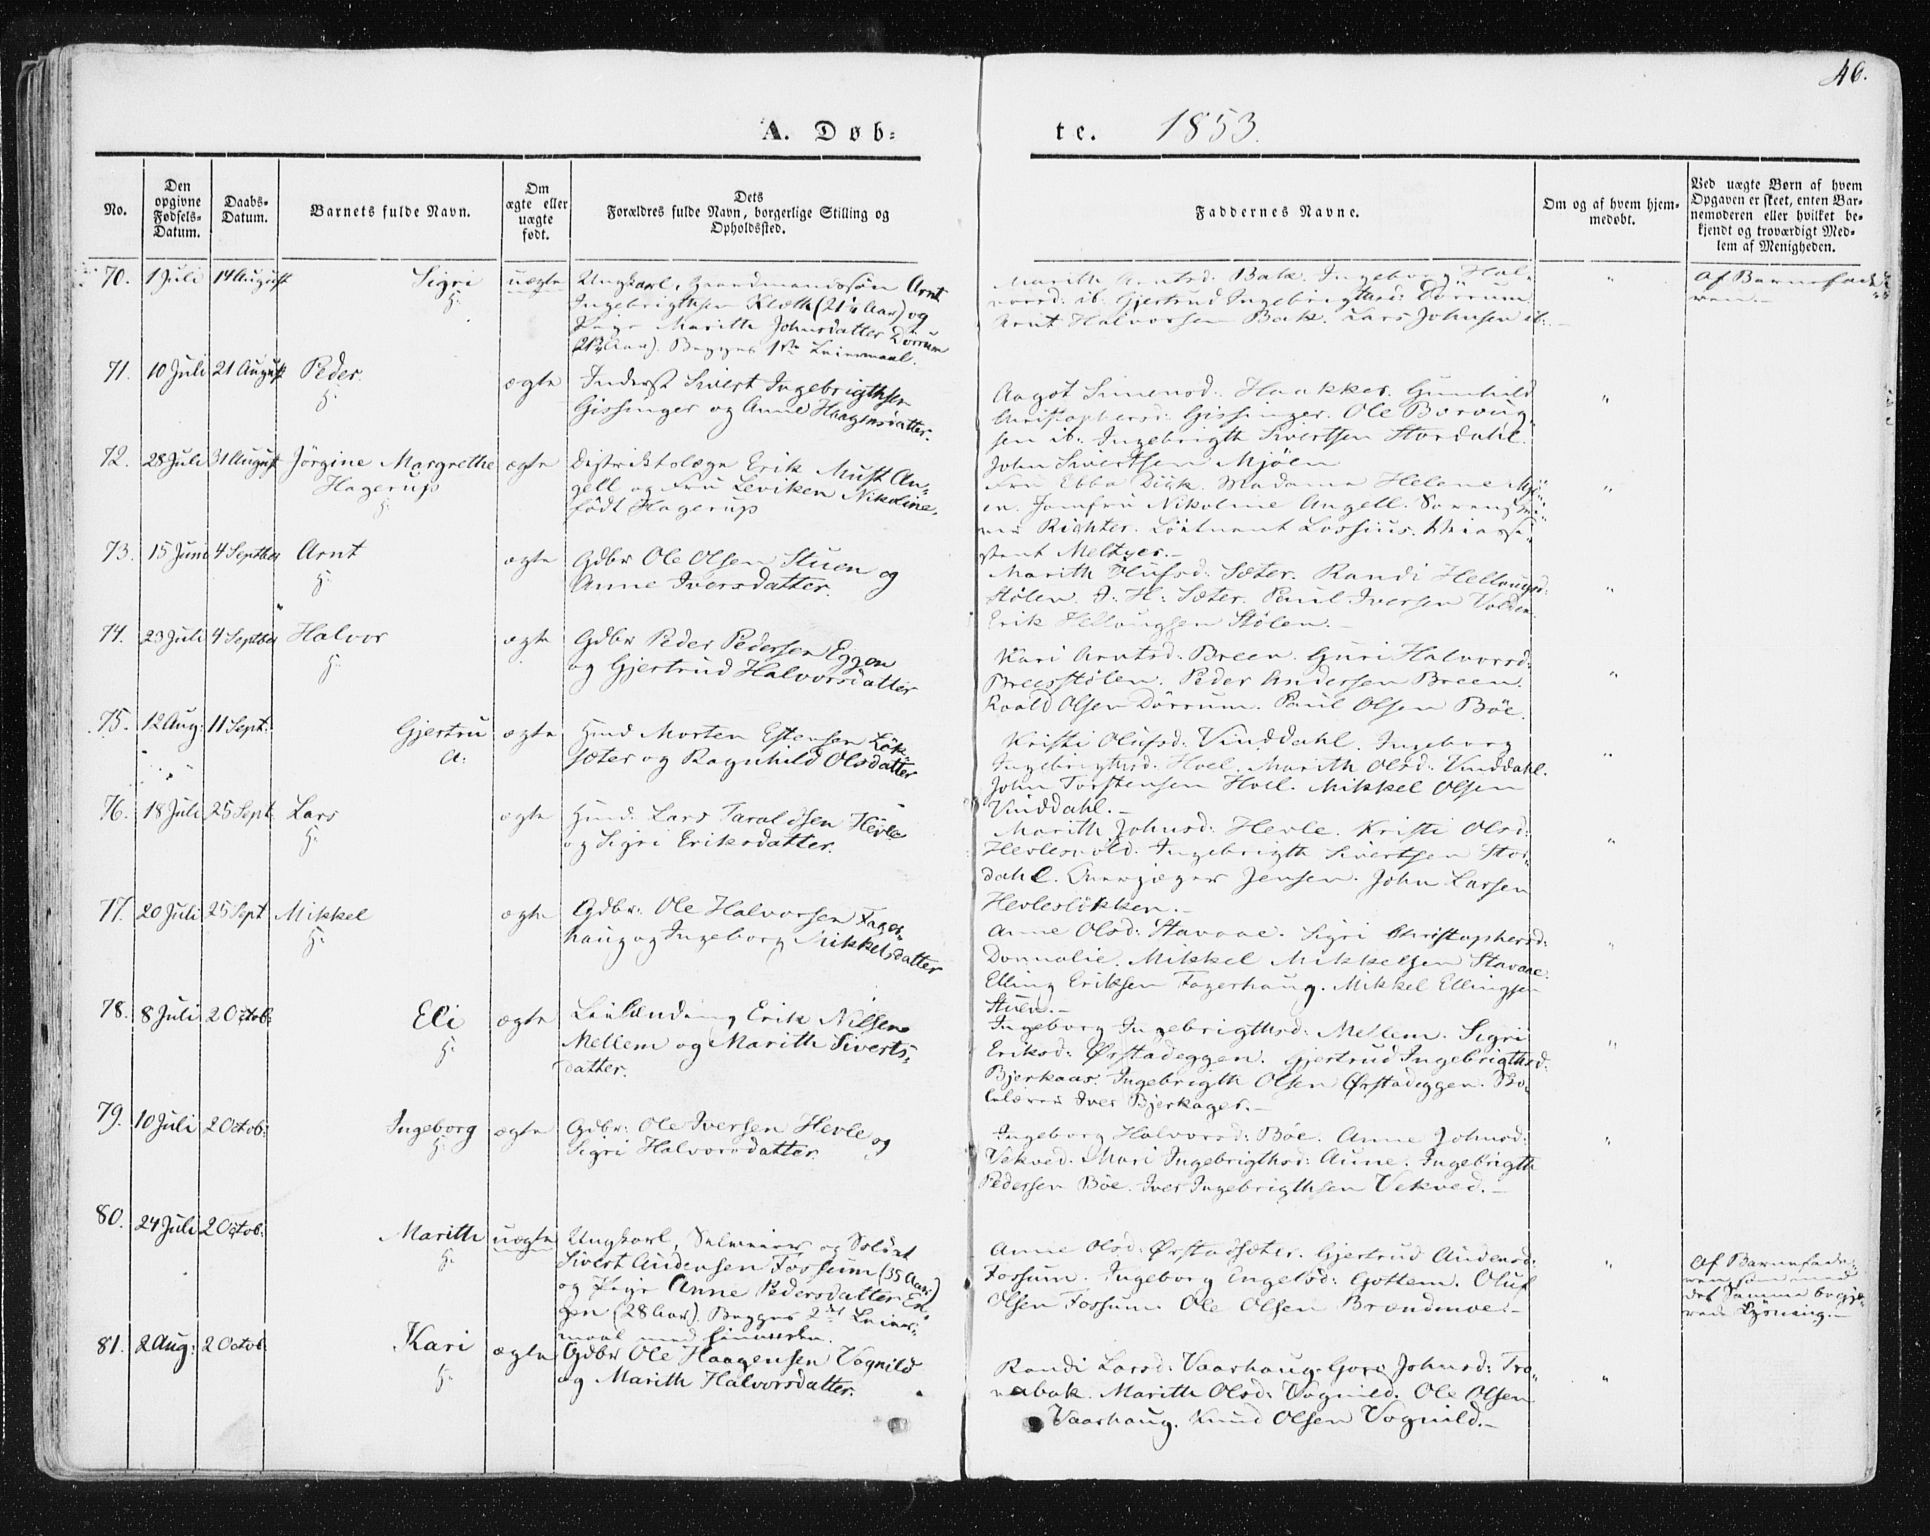 46.
A. Døb-
te. 1853.
No.
Den opgivne Fødsels-Datum.
Daabs-Datum.
Barnets fulde Navn.
Om ægte eller uægte født.
Dets Forældres fulde Navn, borgerlige Stilling og Opholdssted.
Faddernes Navne.
Om og af hvem hjemmedøbt.
Ved uægte Børn af hvem Opgaven er skeet, enten Barnemoderen eller hvilket bekjendt og troværdigt Medlem af Menigheden.
70. 1 Juli 14 August Sigri uægte Ungkarl, Gaardmandssøn Arnt
H:
Ingebrigthsen Kleth (21 1/4 Aar) og
Pige Marith Johnsdatter Dörrum
Aar). Begges 1ste Leiermaal.
Marith Arntsd: Bak. Ingeborg Hal-
vorsd. ib. Gjertrud Ingebrigthsd: Dörrum.
Arnt Halvorsen Bak. Lars Johnsen ib:
"
Af Barnefade-
ren.-
71. 10 Juli 21 August Peder. ægte Inderst Sivert Ingebrigthsen
H:
Gissinger og Anne Haagensdatter.
Aagot Simensd: Haakker. Gunhild
Christophersd: Gissinger. Ole
sen ib: Ingebrigth Sivertsen Stordahl.
John Sivertsen Mjöen
"
72. 28 Juli 31 August Jörgine Margrethe ægte Distriktslæge Erik Must An-
Hagerup
H:
gell og Fru Leviken Nikoline,
födt Hagerup
Fru Ebba Madame Helene Mjö-
en. Jomfru Nikoline Angell.
Richter. Löitnant Lossius.
Meltzer.-
"
73. 15 Juni 4 Septber Arnt ægte Gdbr Ole Olsen Stuen og
H:
Anne Iversdatter.
Marith Olufsd: Sæter. Randi Hellaugsd:
Stölen. J: H: Sæter. Paul Iversen Volden.
Erik Hellaugsen Stölen.-
"
74. 23 Juli 4 Septber Halvor ægte Gdbr Peder Pedersen Eggen
H:
og Gjertrud Halvorsdatter
Kari Arntsd: Breen. Guri Halvorsd:
Breesstölen. Peder Andersen Breen.
Roald Olsen Dörrum. Paul Olsen Böe.
"
75. 12 Aug: 11 Sept: Gjertru ægte Hmd Morten Estensen Lök-
A:
sæter og Ragnhild Olsdatter
Kristi Olufsd: Vinddahl. Ingeborg
Ingebrigthsd: Hoel. Marith Olsd: Vinddahl.
John Torstensen Hoel. Mikkel Olsen
Vinddahl.-
"
76. 18 Juli 25 Sept. Lars ægte Hmd: Lars Taraldsen Hevle
H:
og Sigri Eriksdatter.
Marith Johnsd: Hevle. Kristi Olsd:
Hevlesvold. Ingebrigth Sivertsen Stor-
dahl. Jensen. John Larsen
Hevleslökken.-
"
77. 20 Juli 25 Sept Mikkel ægte Gdbr: Ole Halvorsen Fager-
H:
haug og Ingeborg Mikkelsdatter
Anne Olsd: Stavaae. Sigri Christophersd:
Donnalie. Mikkel Mikkelsen Stavaae.
Elling Eriksen Fagerhaug. Mikkel Ellingsen
Stuen.-
"
78. 8 Juli 2 Octob: Eli ægte Leilænding Erik Nilsen
H:
Mellem og Marith Siverts-
datter.
Ingeborg Ingebrigthsd: Mellem. Sigri
Eriksd: Ørstadeggen. Gjertrud Ingebrigthsd.
Bjerkaas. Ingebrigth Olsen Ørstadeggen.
Iver Bjerkager.-
"
79. 10 Juli 2 Octob: Ingeborg ægte Gdbr: Ole Iversen Hevle og
H:
Sigri Halvorsdatter.
Ingeborg Halvorsd: Böe. Anne Johnsd:
Vekved. Mari Ingebrigthsd: Aune. Ingebrigth
Pedersen Böe. Iver Ingebrigthsen Vekved.-
"
80. 24 Juli 2 Octob: Marith uægte Ungkarl, Selveier og Soldat
H:
Sivert Andersen Fossum (35 Aar)
og Pige Anne Pedersdatter
gen (28 Aar). Begges 2det Leier-
maal med hinanden.
Anne Olsd: Ørstadsæter. Gjertrud Andersd:
Fossum. Ingeborg Engelsd: Gottem. Oluf
Olsen Fossum. Ole Olsen Brændmoe.-
"
Af Barnefade-
ren som med
det Samme begje-
rede Lysning.-
81. 2 Aug: 2 Octob: Kari ægte Gdbr Ole Haagensen Vognild
H:
og Marith Halvorsdatter.
Randi Larsd: Vaarhaug. Goro Johnsd: Tro-
nabak. Marith Olsd: Vognild. Ole Olsen
Vaarhaug. Knud Olsen Vognild.-
"